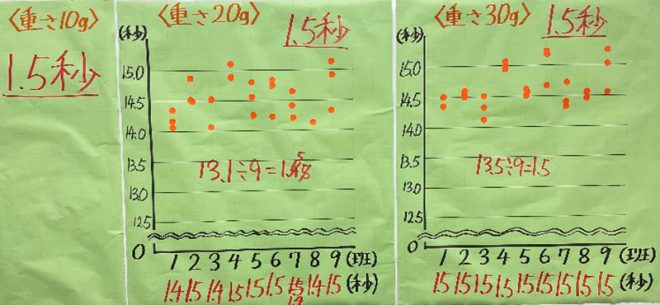 〈重さ10g〉
1.5秒
〈重さ20g〉
1.5秒
(秒)
15.0
14.5
14.0
13.5
13.0
12.5
0
13.1÷9=1.
1 2 3 4 5 6 7 8 9 (班)
1.4 1.5 1.4 1.5 1.5 1.5 1.5 1.4 1.5 (秒)
〈重さ30g〉
1.5秒
(秒)
15.0
14.5
14.0
13.5
13.0
12.5
0
13.5÷9=1.5
1 2 3 4 5 6 7 8 9 (班)
1.5 1.5 1.5 1.5 1.5 1.5 1.5 1.5 1.5 (秒)